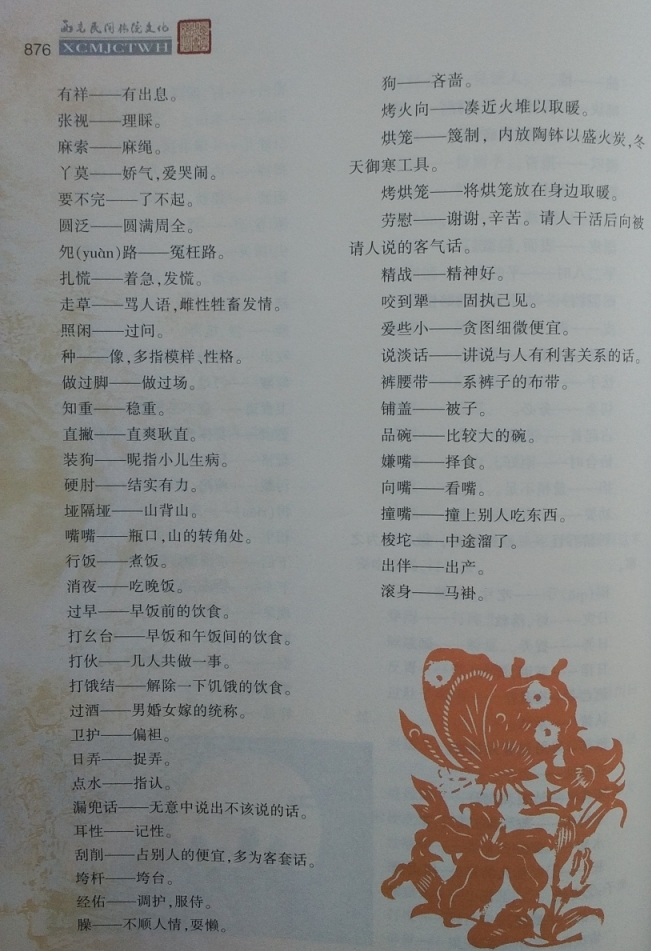 876
西充民间传统文化
XCMJCTWH
有祥——有出息。
张视——理睬。
麻索——麻绳。
丫莫——娇气,爱哭闹。
要不完——了不起。
圆泛——圆满周全。
夗(yuàn)路——冤枉路。
扎慌——着急,发慌。
走草——骂人语,雌性牲畜发情。
照闲——过问。
种——像,多指模样、性格。
做过脚——做过场。
知重——稳重。
直撇——直爽耿直。
装狗——昵指小儿生病。
硬肘——结实有力。
垭隔垭——山背山。
嘴嘴——瓶口,山的转角处。
行饭——煮饭。
消夜——吃晚饭。
过早——早饭前的饮食。
打幺台——早饭和午饭间的饮食。
打伙——几人共做一事。
打饿结——解除一下饥饿的饮食。
过酒——男婚女嫁的统称。
卫护——偏袒。
日弄——捉弄。
点水——指认。
漏兜话——无意中说出不该说的话。
耳性——记性。
刮削——占别人的便宜,多为客套话。
垮杆——垮台。
经佑——调护,服侍。
臊——不顺人情,耍懒。
狗——吝啬。
烤火向——凑近火堆以取暖。
烘笼——篾制，内放陶钵以盛火炭,冬
天御寒工具。
烤烘笼——将烘笼放在身边取暖。
劳慰——谢谢,辛苦。请人干活后向被
请人说的客气话。
精战——精神好。
咬到犟——固执己见。
爱些小——贪图细微便宜。
说淡话——讲说与人有利害关系的话。
裤腰带——系裤子的布带。
铺盖——被子。
品碗——比较大的碗。
嫌嘴——择食。
向嘴——看嘴。
撞嘴——撞上别人吃东西。
梭坨——中途溜了。
出伴——出产。
滚身——马褂。